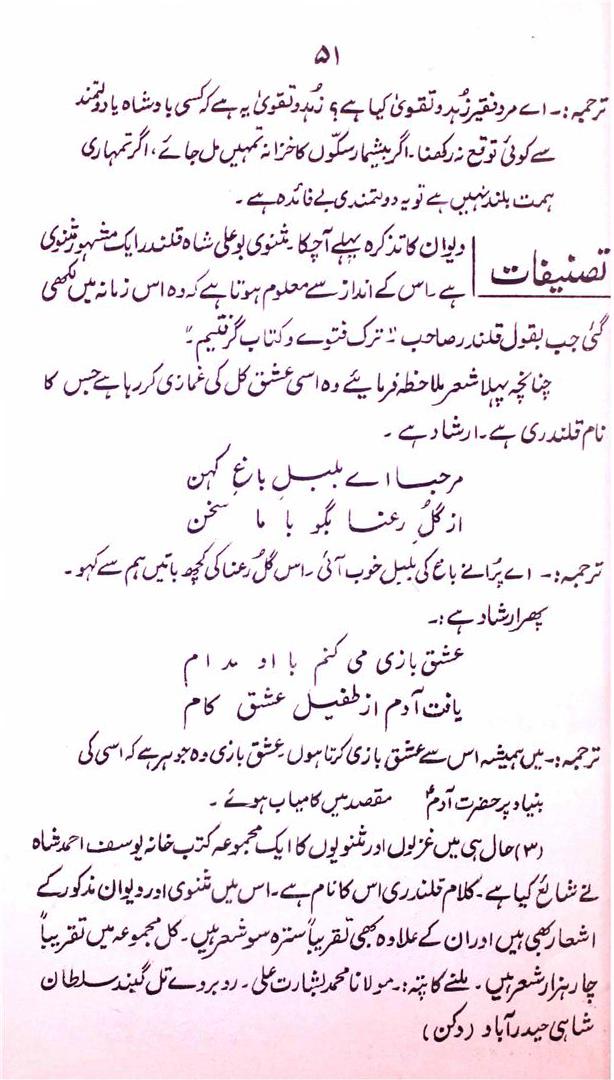 ۵۱
ترجمہ:۔ اے مرد فقیر زُہد و تقویٰ کیا ہے؟ زُہد و تقویٰ یہ ہے کہ کسی بادشاہ یا دولتمند
سے کوئی توقع نہ رکھنا۔ اگر بیشمار سکّوں کا خزانہ تمہیں مل جائے، اگر تمہاری
ہمت بلند نہیں ہے تو یہ دولتمندی بے فائدہ ہے۔
تصنیفات
دیوان کا تذکرہ پہلے آچکا۔ مثنوی بوعلی شاہ قلندر ایک مشہور مثنوی
ہے۔ اس کے انداز سے معلوم ہوتا ہے کہ وہ اس زمانہ میں لکھی
گئی جب بقول قلندر صاحب "ترک فتوے و کتاب گرفتیم۔"
چنانچہ پہلا شعر ملاحظہ فرمایئے وہ اسی عشق کل کی غمازی کر رہا ہے جس کا
نام قلندری ہے۔ ارشاد ہے۔
مرحبا اے بلبلِ باغِ کہن
از گلِ رعنا بگو با ما سخن
ترجمہ:۔ اے پُرانے باغ کی بلبل خوب آئی۔ اس گلُ رعنا کی کچھ باتیں ہم سے کہو۔
پھر ارشاد ہے:۔
عشق بازی می کنم با او مدام
یافت آدم از طفیل عشق کام
ترجمہ:۔ میں ہمیشہ اس سے عشق بازی کرتا ہوں۔ عشق بازی وہ جوہر ہے کہ اسی کی
بنیاد پر حضرت آدمؑ مقصد میں کامیاب ہوئے۔
(۳) حال ہی میں غزلوں اور مثنویوں کا ایک مجموعہ کتب خانہ یوسف احمد شاہ
نے شائع کیا ہے۔ کلام قلندری اس کا نام ہے۔ اس میں مثنوی اور دیوان مذکور کے
اشعار بھی ہیں اور ان کے علاوہ بھی تقریباً سترہ سو شعر ہیں۔ کل مجموعہ میں تقریباً
چار ہزار شعر ہیں۔ ملنے کا پتہ:۔ مولانا محمد بشارت علی۔ روبروے تل گنبد سلطان
شاہی حیدرآباد (دکن)